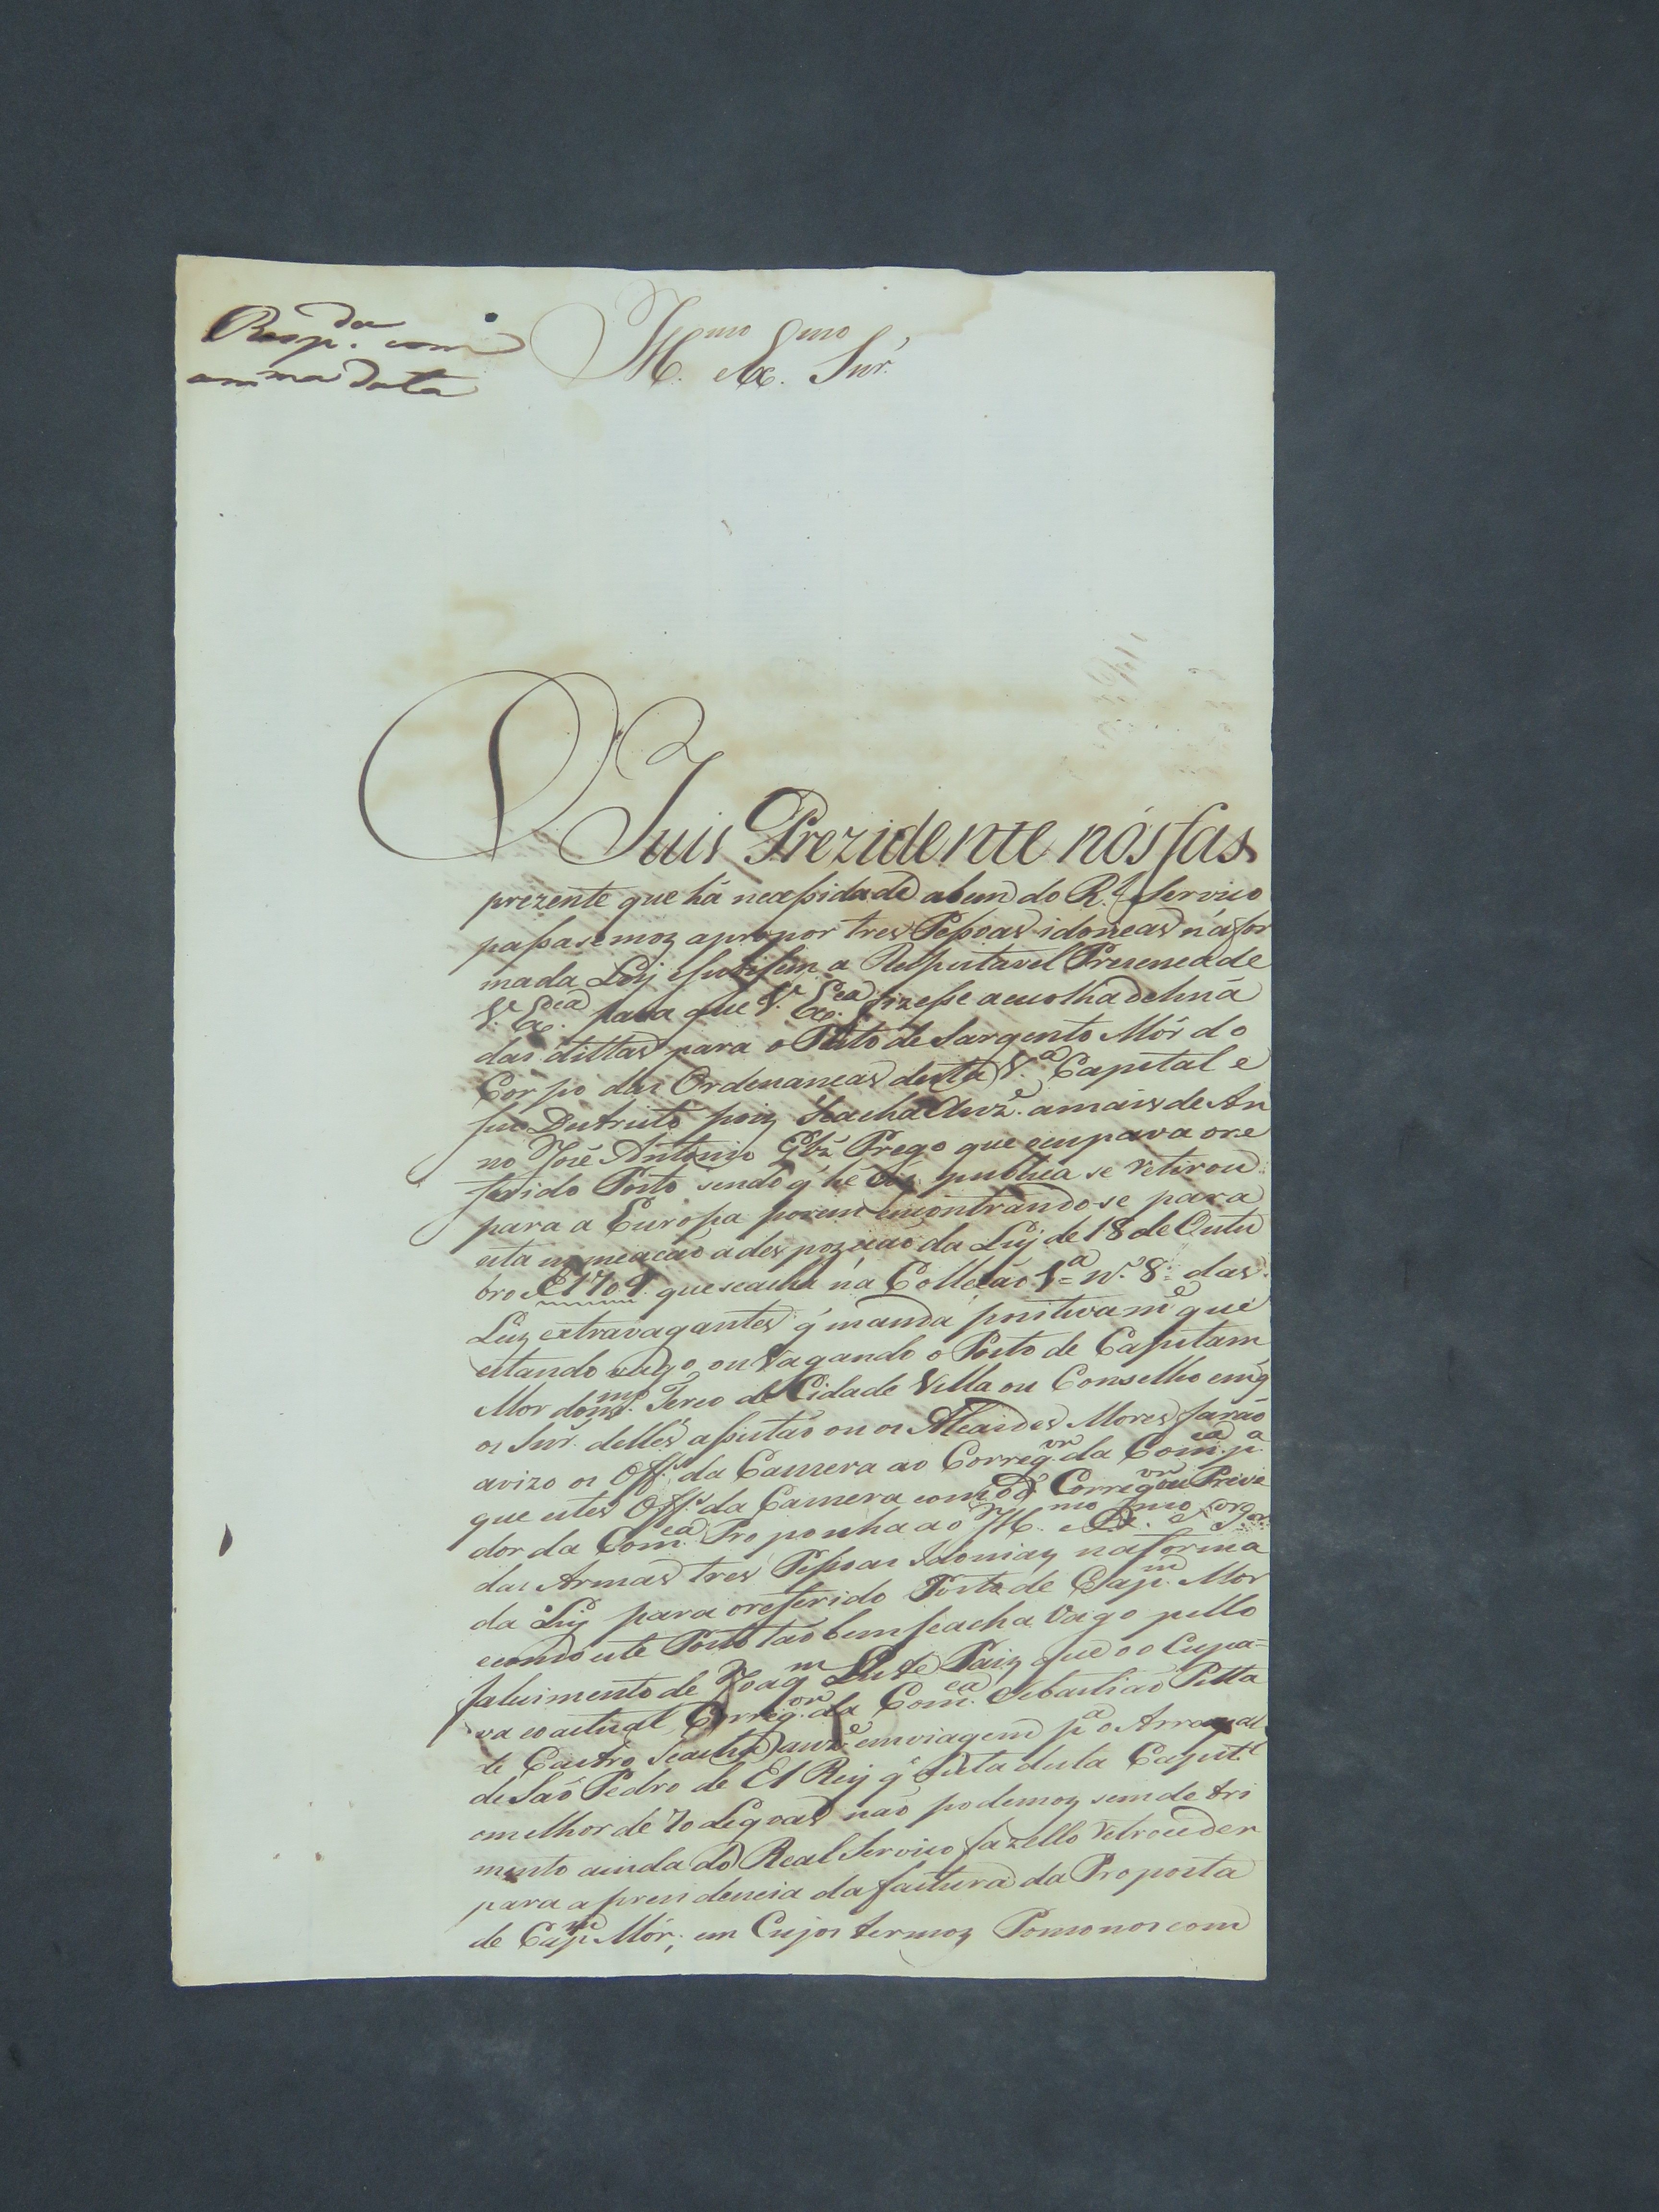 Resp.da com
a mma data
Ill.mo Ex.mo Snr.
O Juis Prezidente nos fas
prezente que há necessidade abem do R.l Serviço
passasemoz apropor tres Pessoas idoneas ná for
ma da Ley esubissem a Respeitavel Prezenca de
V. Ex.cia para que V. Ex.cia fizesse a escolha de huá
das dittas para o Posto de Sargento Mór do
Corpo das Ordenancas desta V.a Capital e
seo Destricto poiz seacha Auz.e amais de An
no José Antonio Glz Prego que ocupava ore
ferido Posto sendo q' hé vós publica se retirou
para a Europa porem encontrando-se para
esta nomeacáo a despozicaó da Ley de 18 de Outu
bro de 1709. que seacha ná Collecáo 1.a n.o 8.o das
Leiz extravagantes q' manda positivam.e que
estando vago, ou Vagando o Posto de Capitam
Mor do Terco de Cidade Villa ou Conselho em q'
os Snr. delles assistáo ou os Alcaides Mores faráo
avizo os Off.s da Camera ao Correg.or da Com.ca p.a
que estes Off.s da Camera com o d.o Correg.or ou Prove
dor da Com.ca Proponha ao Ill.mo Ex.mo S.r G.or
das Armas tres Pessoas Idoniaz na forma
da Ley para oreferido Posto de Cap.m Mor
ecomo este Posto taó bem seacha Vago pello
falecimento de Joaq.m Leite Paiz que o o Cupa-
va eoactual Correg.or da Com.ca Sebastiaó Pitta
de Castro seacha auz.e em viagem p.a o Arrayal
de Saó Pedro de El Rey q' dista desta Capit.l
omelhor de 70 Legoas náo podemoz sem detri
mento ainda do Real Servico fazello retroceder
para aprezidencia da factura da Proposta
de Cap.m Mór; em Cujos termoz Pomonos com